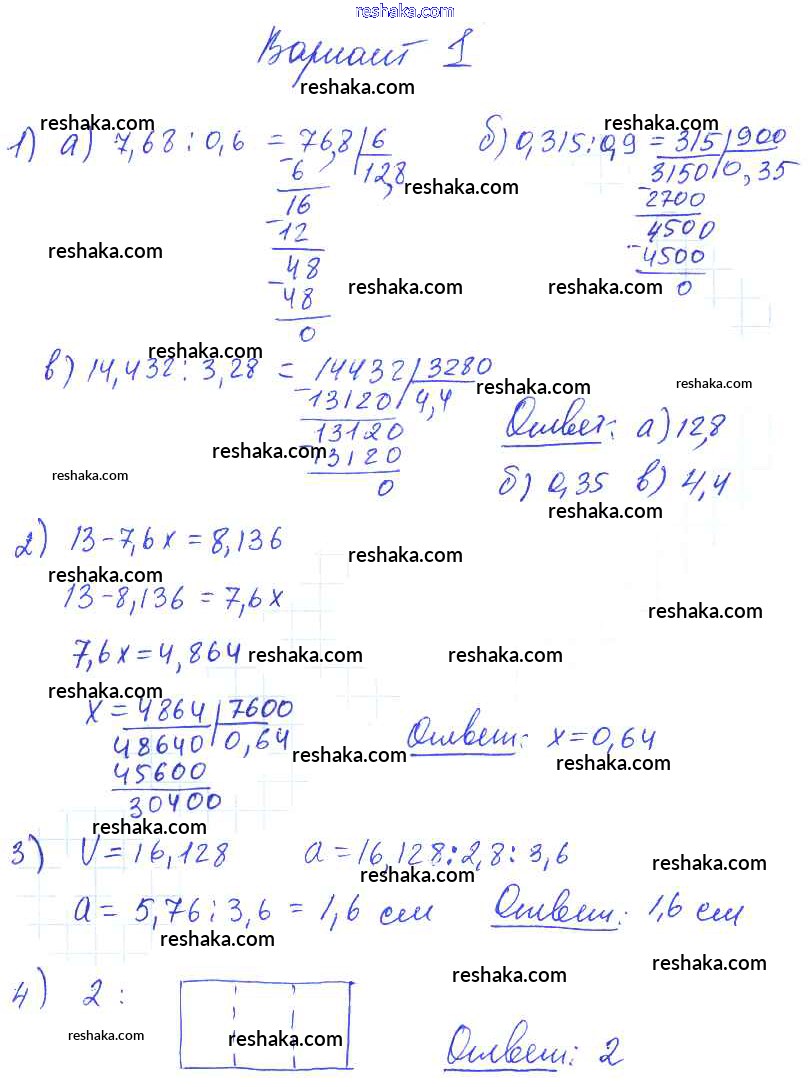 reshaka.com
Вариант 1
reshaka.com
reshaka.com reshaka.com
1) а) 7,68 : 0,6 = 76,8 | 6 б) 0,315 : 0,9 = 315 | 900
6 12,8 3150 0,35
reshaka.com
16 2700
12 4500
reshaka.com
48 4500
48 0
reshaka.com reshaka.com
0
reshaka.com
в) 14,432 : 3,28 = 14432 | 3280
reshaka.com reshaka.com
13120 4,4
13120 Ответ: а) 12,8
reshaka.com
13120
reshaka.com
0 б) 0,35 в) 4,4
reshaka.com
2) 13 - 7,6x = 8,136
reshaka.com
reshaka.com
13 - 8,136 = 7,6x
reshaka.com
7,6x = 4,864
reshaka.com reshaka.com
reshaka.com
x = 4864 | 7600
48640 0,64 Ответ: x = 0,64
reshaka.com reshaka.com
45600
30400
reshaka.com
3) V = 16,128 a = 16,128 : 2,8 : 3,6
reshaka.com reshaka.com
a = 5,76 : 3,6 = 1,6 см Ответ: 1,6 см
reshaka.com
reshaka.com reshaka.com
4) 2 :
reshaka.com reshaka.com
Ответ: 2
reshaka.com